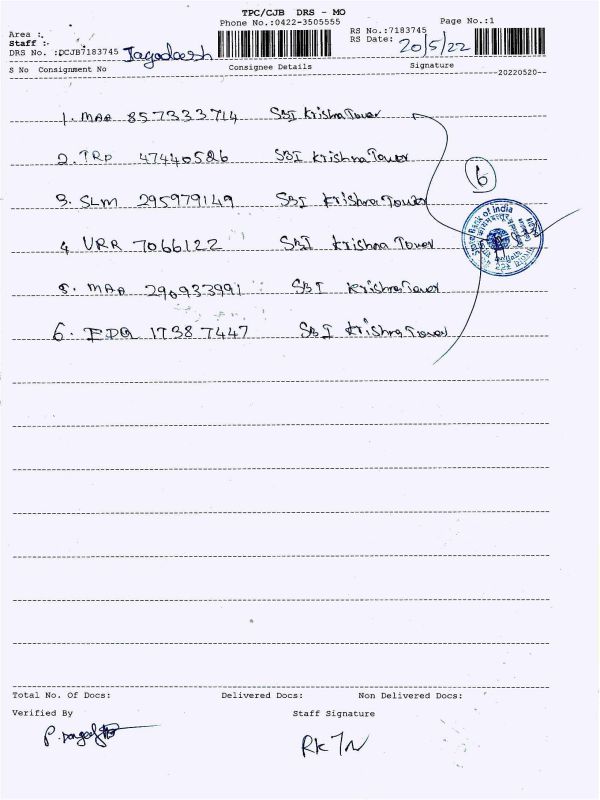 TPC/CJB DRS - MO
Phone No.:0422-3505555
Page No.:1
Area :
RS No.:7183745
Staff :-
RS Date: 20/5/22
DRS No. :DCJB7183745 Jagadeesh
S No Consignment No Consignee Details Signature
--20220520--
1. MAA 857333714 SBI Krishna Tower
2. TRP 47440526 SBI Krishna Tower
6
3. SLM 295979149 SBI Krishna Tower
State Bank of India
4 VRR 7066122 SBI Krishna Tower
5. MAA 290933991 SBI Krishna Tower
6. EDQ 17387447 SBI Krishna Tower
Total No. Of Docs: Delivered Docs: Non Delivered Docs:
Verified By Staff Signature
RK TN